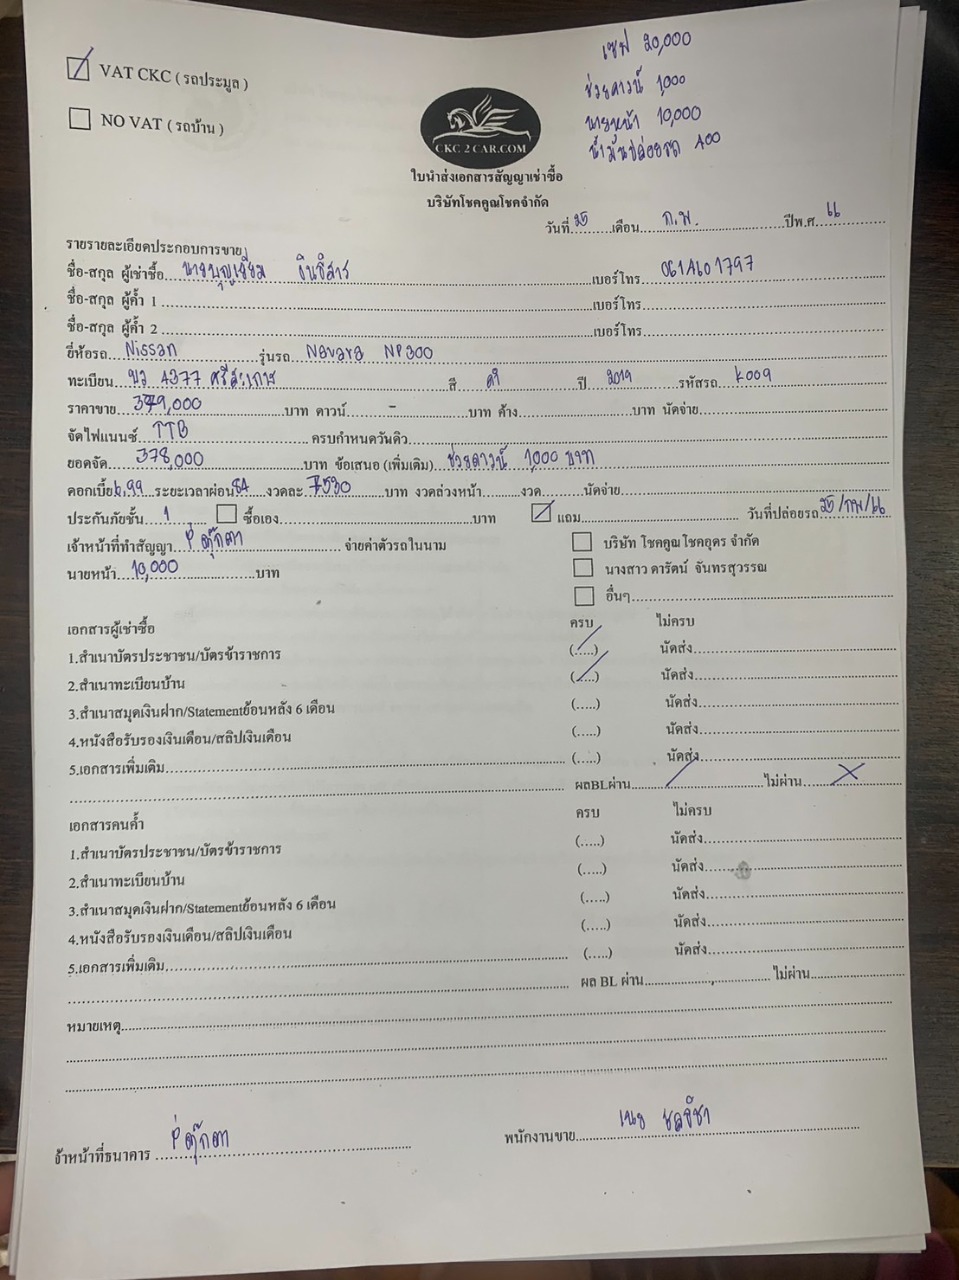 VAT CKC ( รถประมูล )
NO VAT ( รถบ้าน )
เซฟ 20,000
ช่วยดาวน์ 1,000
นายหน้า 10,000
น้ำมันปล่อยรถ 400
CKC 2 CAR.COM
ใบนำส่งเอกสารสัญญาเช่าซื้อ
บริษัทโชคคูณโชคจำกัด
วันที่ 25 เดือน ก.พ. ปีพ.ศ 66
รายรายละเอียดประกอบการขาย
ชื่อ-สกุล ผู้เช่าซื้อ นายบุญเยี่ยม เบอร์โทร 0614601797
ชื่อ-สกุล ผู้ค้ำ 1 เบอร์โทร
ชื่อ-สกุล ผู้ค้ำ 2 เบอร์โทร
ยี่ห้อรถ Nissan รุ่นรถ Navara NP300
ทะเบียน 4377 ศรีสะเกษ สี ดำ ปี 2019 รหัสรถ K009
ราคาขาย 379,000 บาท ดาวน์ - บาท ค้าง บาท นัดจ่าย
จัดไฟแนนซ์ TTB ครบกำหนดวันดิว
ยอดจัด 378,000 บาท ข้อเสนอ (เพิ่มเติม) ช่วยดาวน์ 1,000 บาท
ดอกเบี้ย 6.99 ระยะเวลาผ่อน 84 งวดละ 7530 บาท งวดล่วงหน้า งวด นัดจ่าย
ประกันภัยชั้น 1 ซื้อเอง บาท แถม วันที่ปล่อยรถ 25/กพ/66
เจ้าหน้าที่ทำสัญญา พี่ตุ๊กตา จ่ายค่าตัวรถในนาม บริษัท โชคคูณโชคอุดร จำกัด
นายหน้า 10,000 บาท นางสาว ดารัตน์ จันทรสุวรรณ
อื่นๆ
เอกสารผู้เช่าซื้อ ครบ ไม่ครบ
1.สำเนาบัตรประชาชน/บัตรข้าราชการ (.....) นัดส่ง
2.สำเนาทะเบียนบ้าน (.....) นัดส่ง
3.สำเนาสมุดเงินฝาก/Statementย้อนหลัง 6 เดือน (.....) นัดส่ง
4.หนังสือรับรองเงินเดือน/สลิปเงินเดือน (.....) นัดส่ง
5.เอกสารเพิ่มเติม (.....) นัดส่ง
ผลBLผ่าน ไม่ผ่าน
เอกสารคนค้ำ ครบ ไม่ครบ
1.สำเนาบัตรประชาชน/บัตรข้าราชการ (.....) นัดส่ง
2.สำเนาทะเบียนบ้าน (.....) นัดส่ง
3.สำเนาสมุดเงินฝาก/Statementย้อนหลัง 6 เดือน (.....) นัดส่ง
4.หนังสือรับรองเงินเดือน/สลิปเงินเดือน (.....) นัดส่ง
5.เอกสารเพิ่มเติม (.....) นัดส่ง
ผล BL ผ่าน ไม่ผ่าน
หมายเหตุ
จ้าหน้าที่ธนาคาร พี่ตุ๊กตา พนักงานขาย เนย ชลธิชา